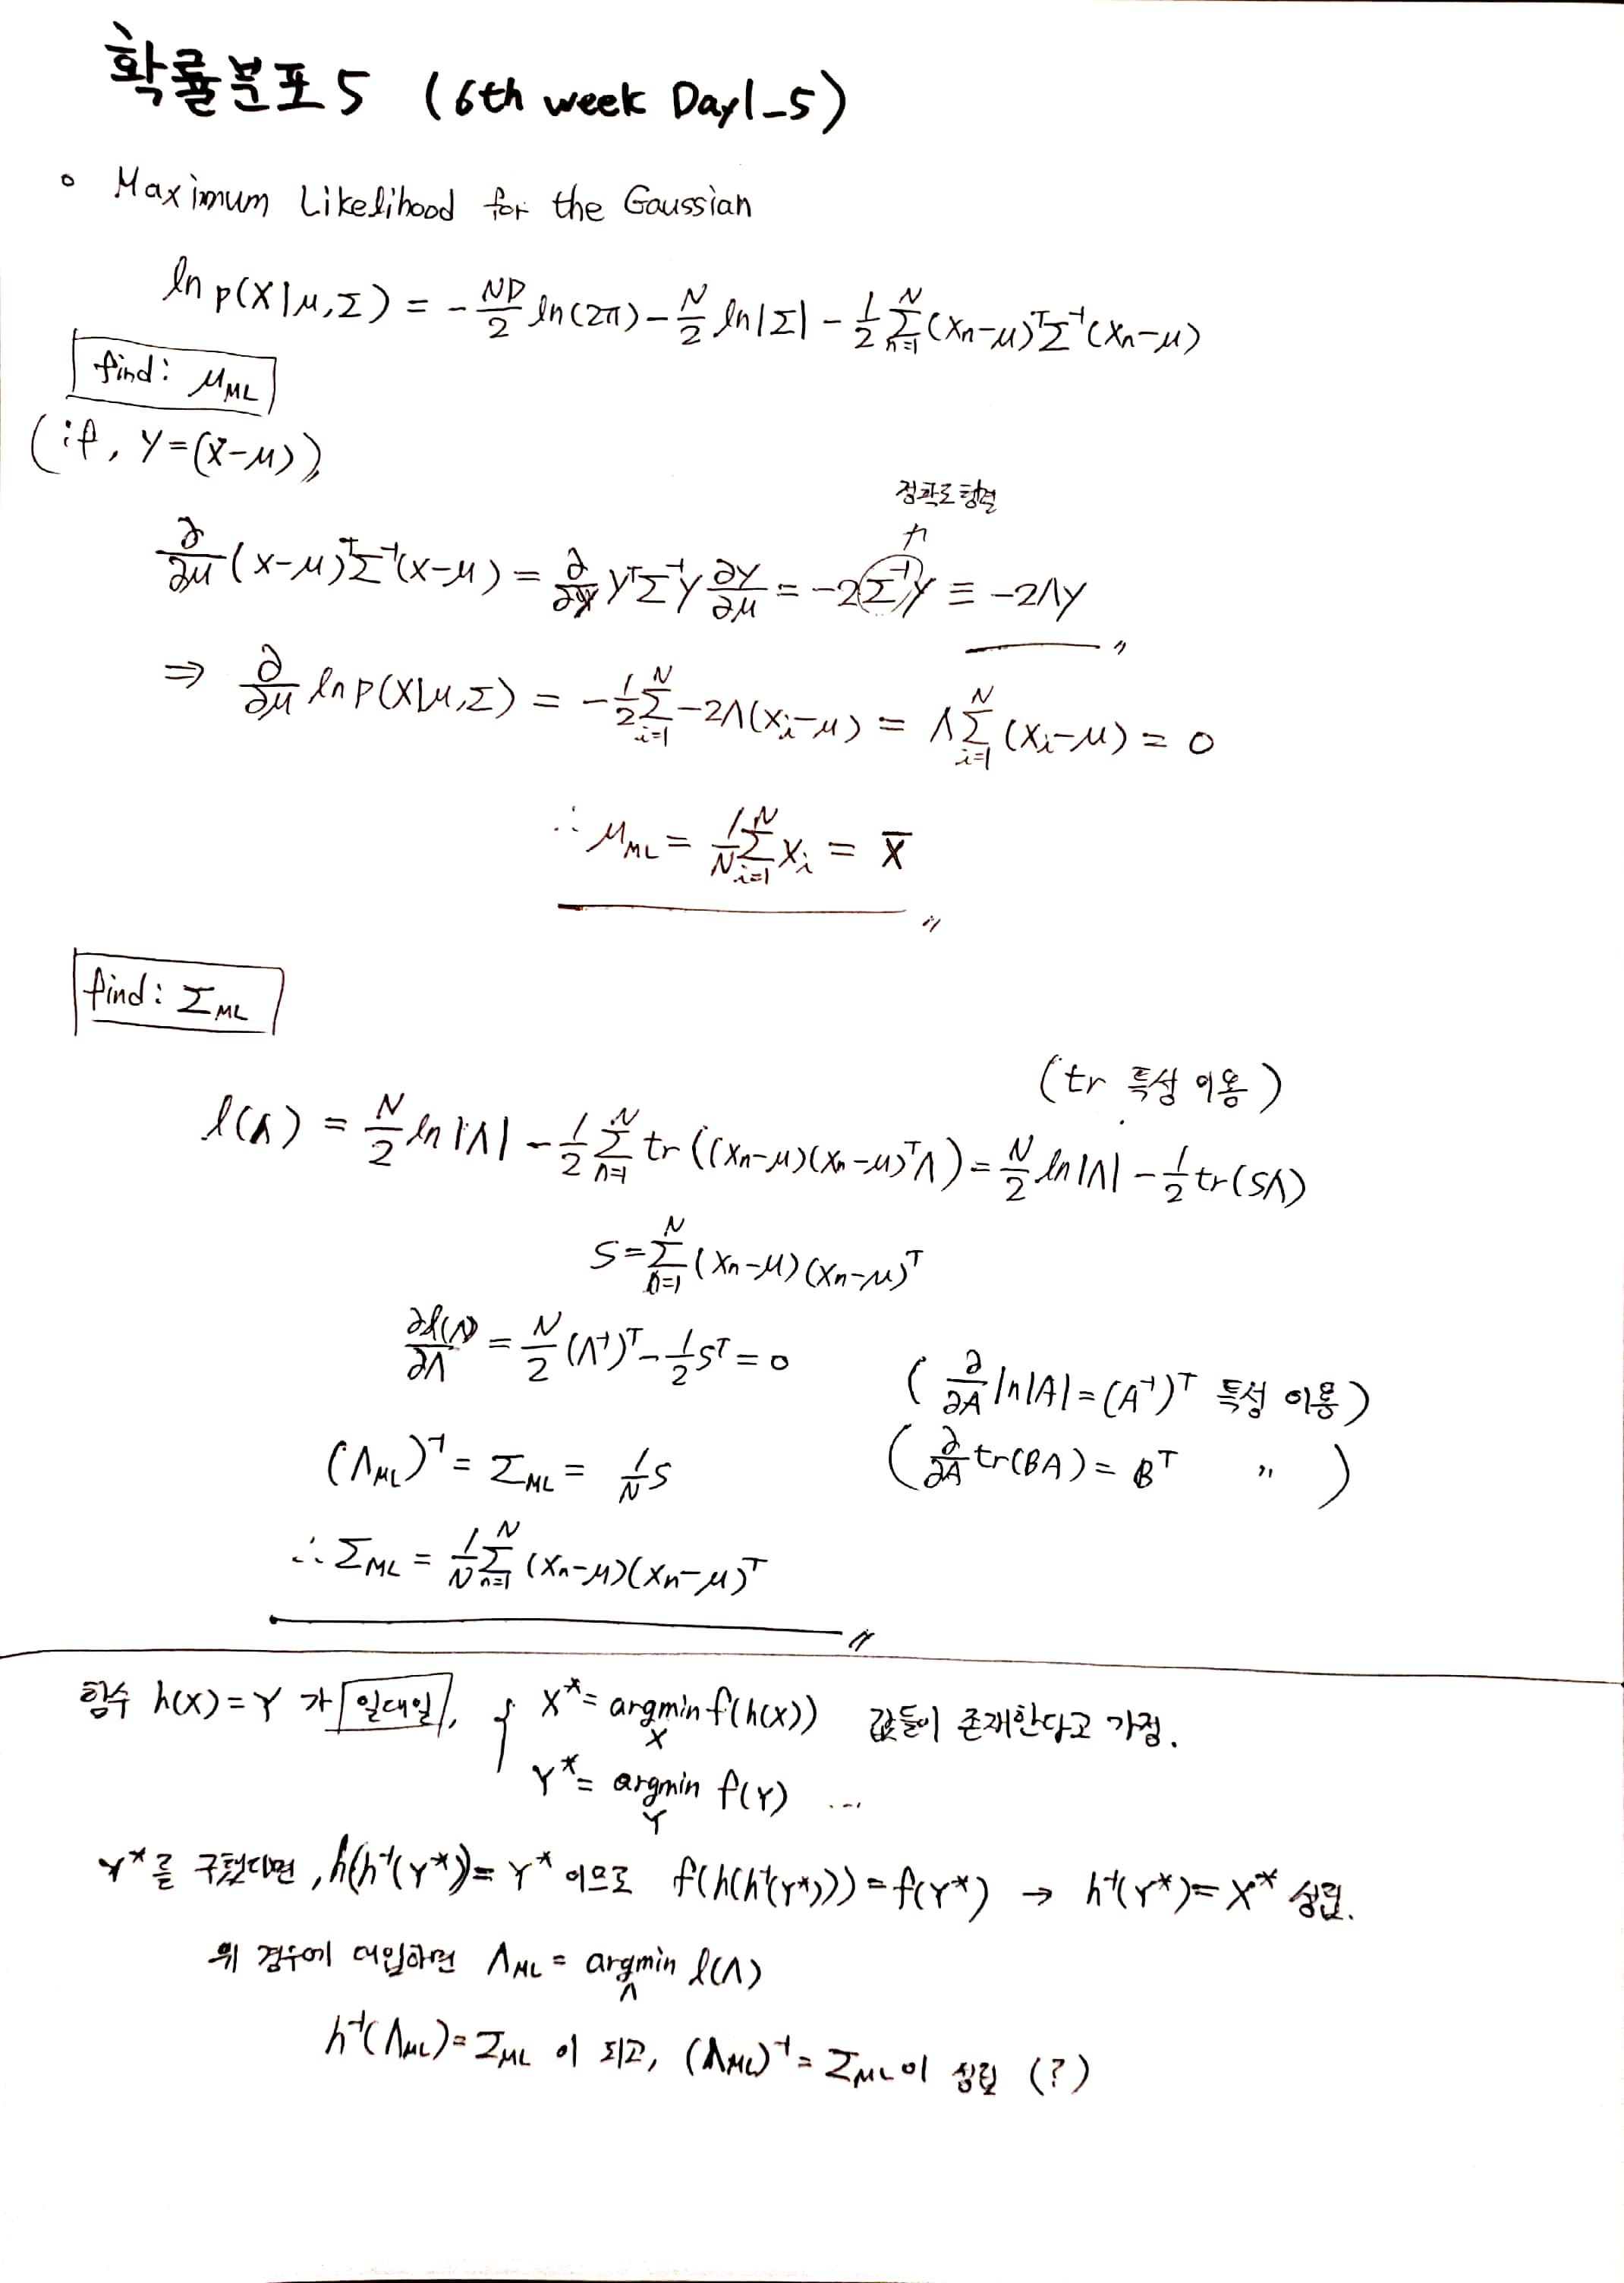 확률분포 5 (6th week Day1_5)
∘ Maximum Likelihood for the Gaussian
ln p(X|μ,Σ) = -ND/2 ln(2π) - N/2 ln|Σ| - 1/2 Σ_{n=1}^{N} (xₙ-μ)ᵀΣ⁻¹(xₙ-μ)
find: μ_ML
(if, y=(x-μ))〃
정확도 행렬
↑
∂/∂μ (x-μ)ᵀΣ⁻¹(x-μ) = ∂/∂y yᵀΣ⁻¹y ∂y/∂μ = -2Σ⁻¹y ≡ -2Λy 〃
⇒ ∂/∂μ ln p(X|μ,Σ) = -1/2 Σ_{i=1}^{N} -2Λ(xᵢ-μ) = Λ Σ_{i=1}^{N} (xᵢ-μ) = 0
∴ μ_ML = 1/N Σ_{i=1}^{N} xᵢ = x̄ 〃
find: Σ_ML
(tr 특성 이용)
l(Λ) = N/2 ln|Λ| - 1/2 Σ_{n=1}^{N} tr((xₙ-μ)(xₙ-μ)ᵀΛ) = N/2 ln|Λ| - 1/2 tr(SΛ)
S = Σ_{n=1}^{N} (xₙ-μ)(xₙ-μ)ᵀ
∂l(Λ)/∂Λ = N/2 (Λ⁻¹)ᵀ - 1/2 Sᵀ = 0
(∂/∂A ln|A| = (A⁻¹)ᵀ 특성 이용)
(Λ_ML)⁻¹ = Σ_ML = 1/N S
(∂/∂A tr(BA) = Bᵀ 〃 )
∴ Σ_ML = 1/N Σ_{n=1}^{N} (xₙ-μ)(xₙ-μ)ᵀ 〃
함수 h(X)=Y 가 일대일, { X* = argmin_X f(h(X)) 값들이 존재한다고 가정.
Y* = argmin_Y f(Y) ...
Y*를 구했다면, h(h⁻¹(Y*))=Y* 이므로 f(h(h⁻¹(Y*)))=f(Y*) → h⁻¹(Y*)=X* 성립.
위 경우에 대입하면 Λ_ML = argmin_Λ l(Λ)
h⁻¹(Λ_ML)=Σ_ML 이 되고, (Λ_ML)⁻¹=Σ_ML이 성립 (?)